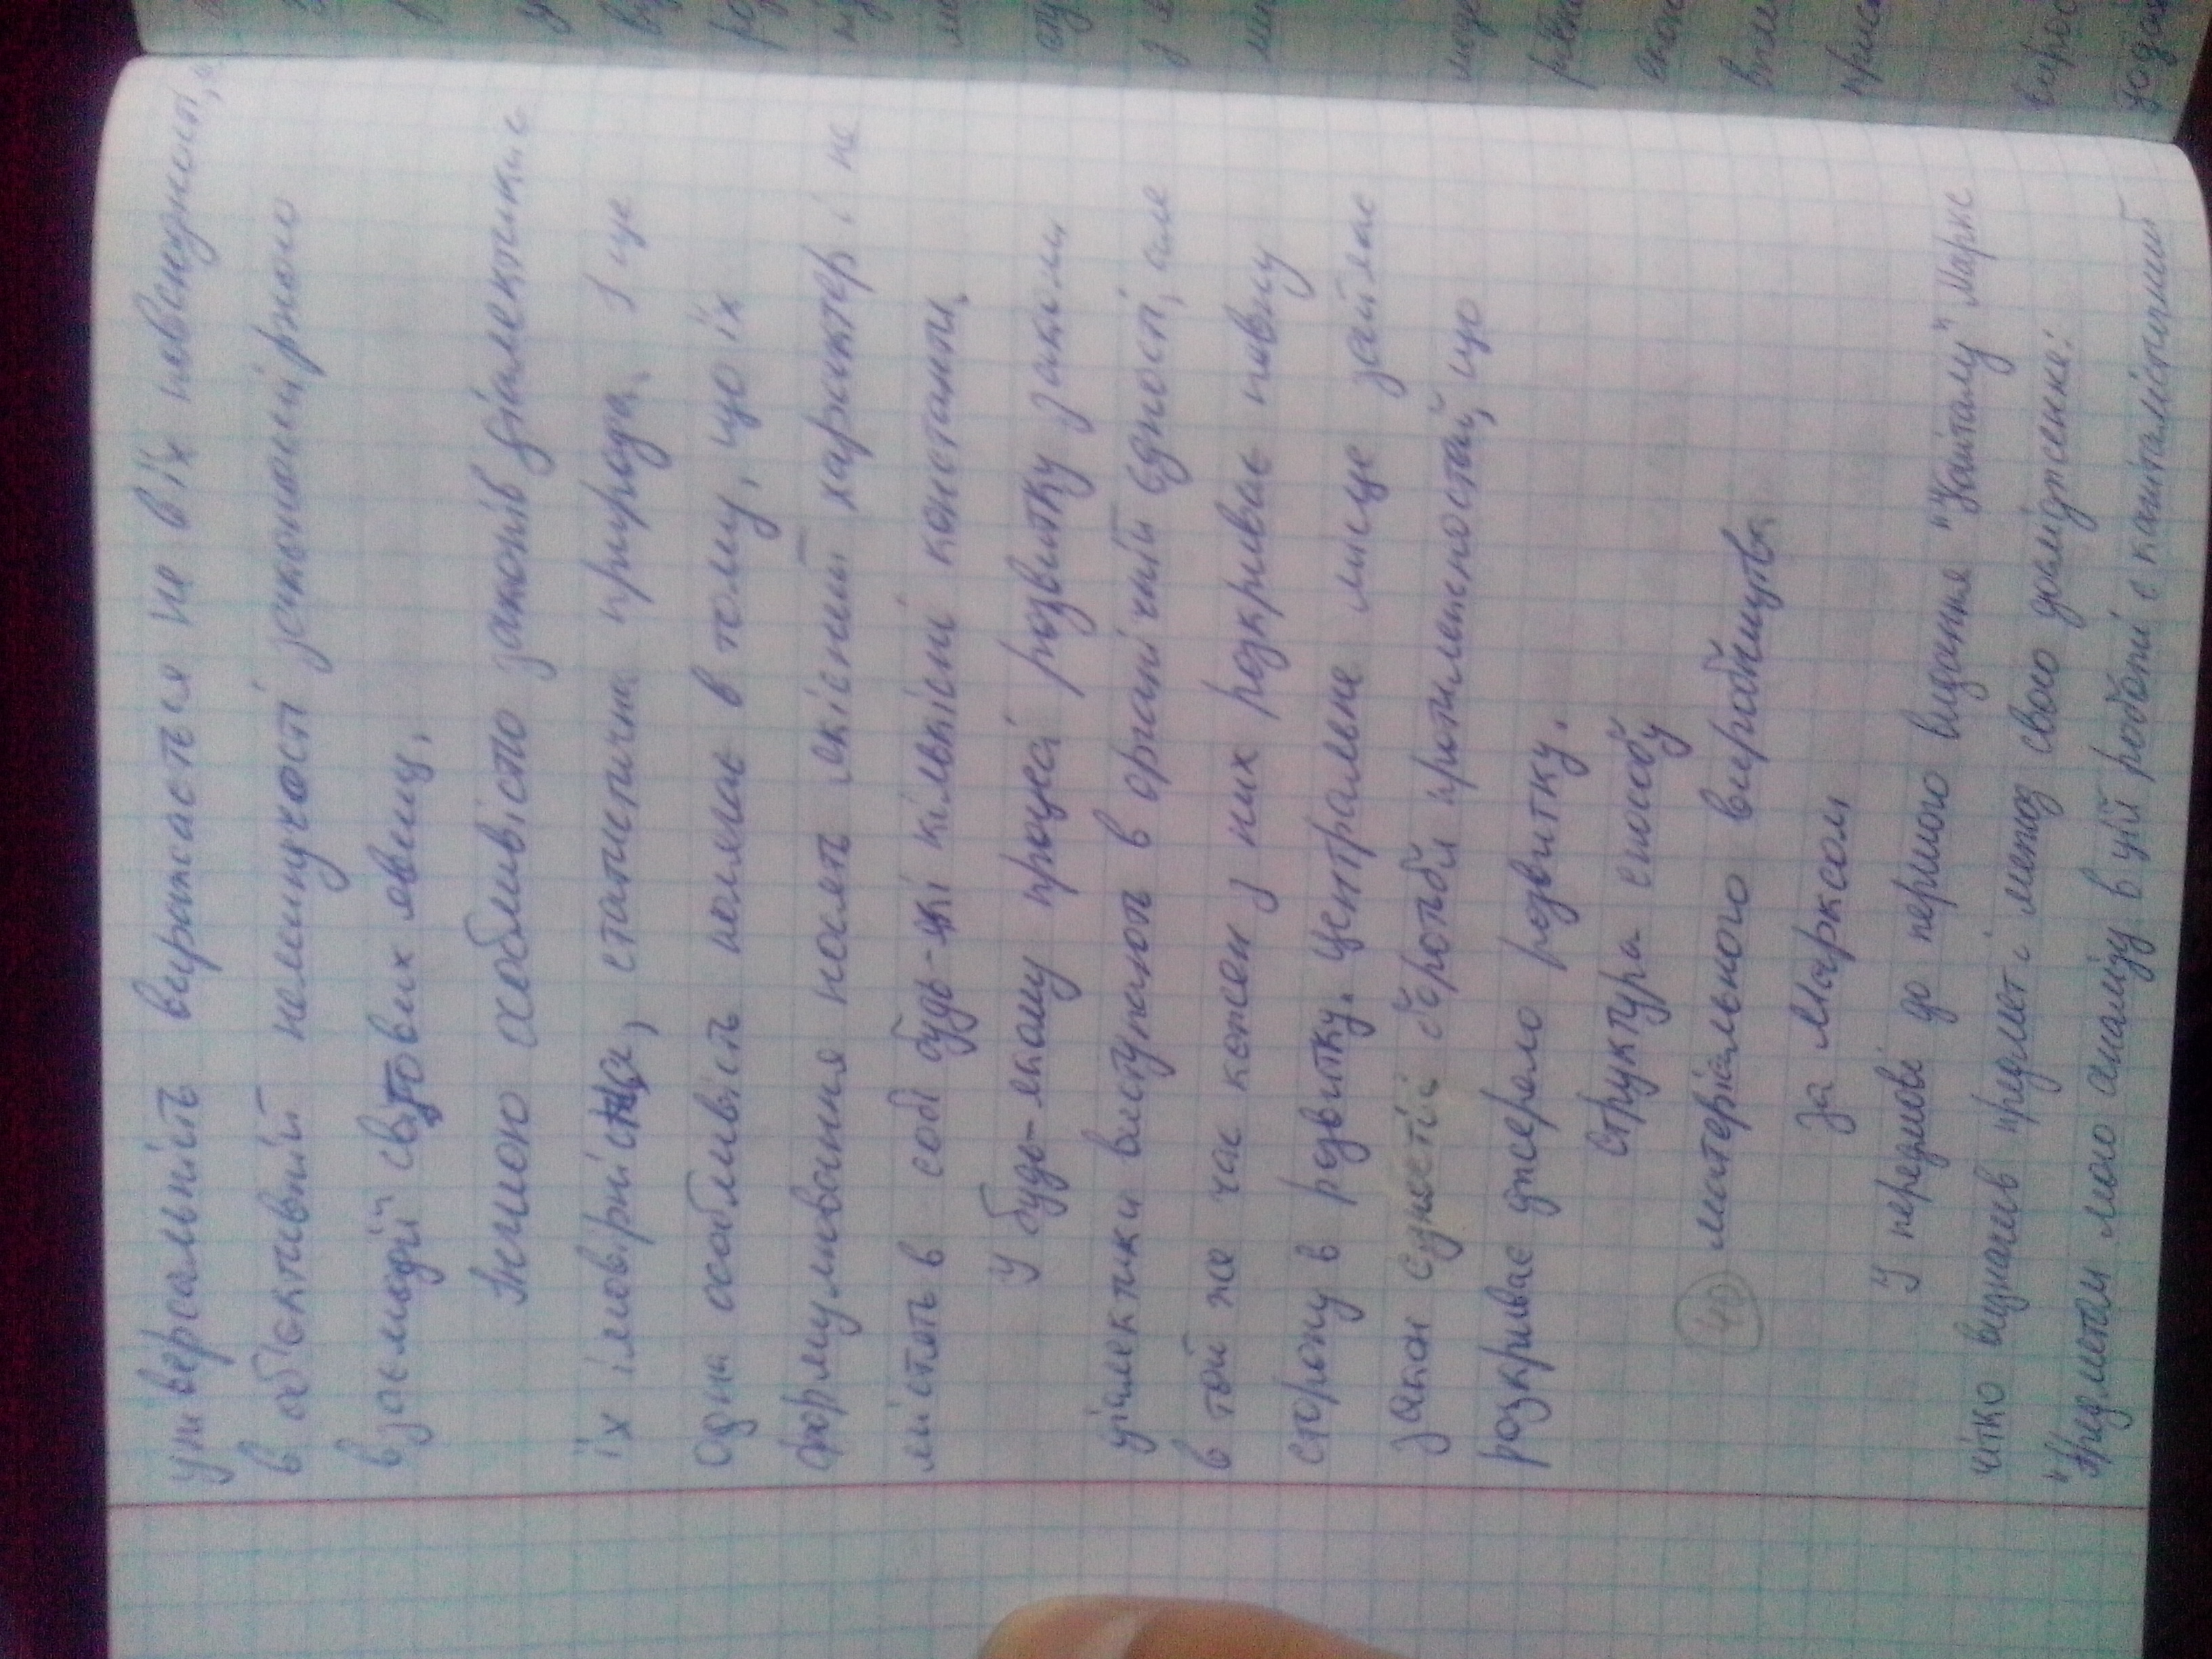 універсальність виражається не в їх повсюдності, а
в об'єктивній неминучості закономірного
взаємодії світових явищ.
Іншою особливістю законів діалектики є
їх імовірнісна, статистична природа. І ще
одна особливість полягає в тому, що їх
формулювання носять якісний характер і не
містять в собі будь-які кількісні константи.
У будь-якому процесі розвитку закони
діалектики виступають в органічній єдності, але
в той же час кожен з них розкриває певну
сторону в розвитку. Центральне місце займає
закон єдності і боротьби протилежностей, що
розкриває джерело розвитку.
Структура способу
40 матеріального виробництва
за Марксом
У передмові до першого видання "Капіталу" Маркс
чітко визначив предмет і метод свого дослідження:
"Предметом мого аналізу в цій роботі є капіталістичний